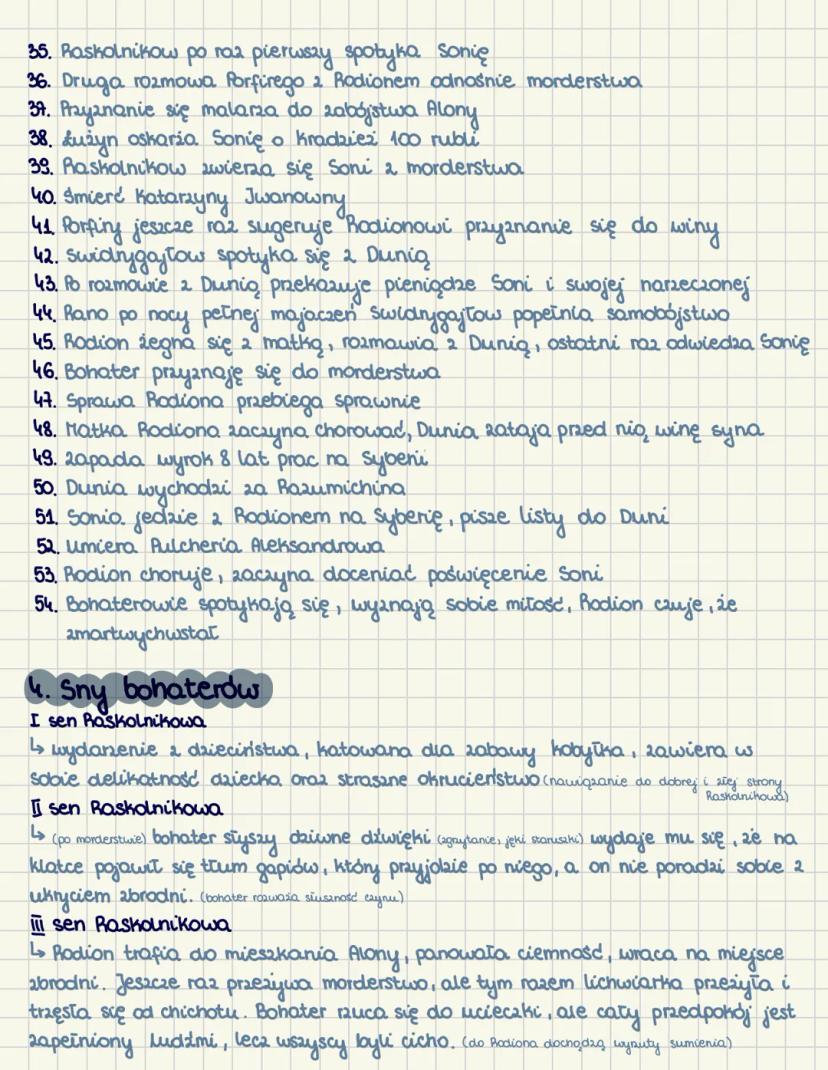 35. Raskolnikow po raz pierwszy spotyka Sonię
36. Druga rozmowa Porfirego z Rodionem odnośnie morderstwa
37. Przyznanie się malarza do zabójstwa Alony
38. Łużyn oskarża Sonię o kradzież 100 rubli
39. Raskolnikow zwierza się Soni z morderstwa
40. Śmierć Katarzyny Iwanowny
41. Porfiry jeszcze raz sugeruje Rodionowi przyznanie się do winy
42. Swidrygajłow spotyka się z Dunią
43. Po rozmowie z Dunią przekazuje pieniądze Soni i swojej narzeczonej
44. Rano po nocy pełnej majaczeń Swidrygajłow popełnia samobójstwo
45. Rodion żegna się z matką, rozmawia z Dunią, ostatni raz odwiedza Sonię
46. Bohater przyznaję się do morderstwa
47. Sprawa Rodiona przebiega sprawnie
48. Matka Rodiona zaczyna chorować, Dunia zataja przed nią winę syna
49. Zapada wyrok 8 lat prac na Syberii
50. Dunia wychodzi za Razumichina
51. Sonia jedzie z Rodionem na Syberię, pisze listy do Duni
52. Umiera Pulcheria Aleksandrowa
53. Rodion choruje, zaczyna doceniać poświęcenie Soni
54. Bohaterowie spotykają się, wyznają sobie miłość, Rodion czuje, że
zmartwychwstał
4. Sny bohaterów
I sen Raskolnikowa
↳ wydarzenie z dzieciństwa, katowana dla zabawy kobyłka, zawiera w
sobie delikatność dziecka oraz straszne okrucieństwo (nawiązanie do dobrej i złej strony
Raskolnikowa)
II sen Raskolnikowa
↳ (po morderstwie) bohater słyszy dziwne dźwięki (zgrzytanie, jęki staruszki) wydaje mu się, że na
klatce pojawił się tłum gapiów, który przyjdzie po niego, a on nie poradzi sobie z
ukryciem zbrodni. (bohater rozważa słuszność czynu)
III sen Raskolnikowa
↳ Rodion trafia do mieszkania Alony, panowała ciemność, wraca na miejsce
zbrodni. Jeszcze raz przeżywa morderstwo, ale tym razem lichwiarka przeżyła i
trzęsła się od chichotu. Bohater rzuca się do ucieczki, ale cały przedpokój jest
zapełniony ludźmi, lecz wszyscy byli cicho. (do Rodiona dochodzą wyrzuty sumienia)